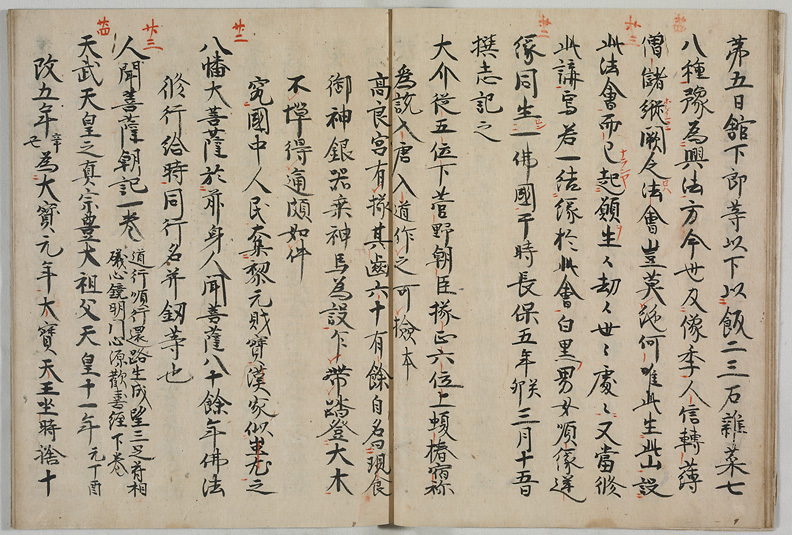 第五日舘下郎等以下以飯二三石雜菜七
八種豫為興法方今世及像季人信轉薄
僧儲纔闕之法會豈莫絶何唯此生此山設
此法會而已起願生々劫々世々處々又當修
此講寫若一結緣於此會白黒男女順緣逆
緣同生一佛國于時長保五年癸卯三月十五日
撰志記之
大介從五位下菅野朝臣 掾正六位上頓椿宿祢
為説入唐入道作之可撿本
高良宮有掾其齒六十有餘自名現食
御神銀器乘神馬為設乍帶踏登大木
不憚得適頗如件
究國中人民奪黎元財寶漢家似
八幡大菩薩於前身人聞菩薩八十餘年佛法
修行給時同行名并釼等也
人聞菩薩朝記一巻
道行順行還路生成望三是首相
儀心鏡明門心源歡喜經下巻
天武天皇之真宗豊大祖父天皇十一年元丁酉
改五年辛七為大寳元年大寳天王坐時從十
廿二
廿三
廿四